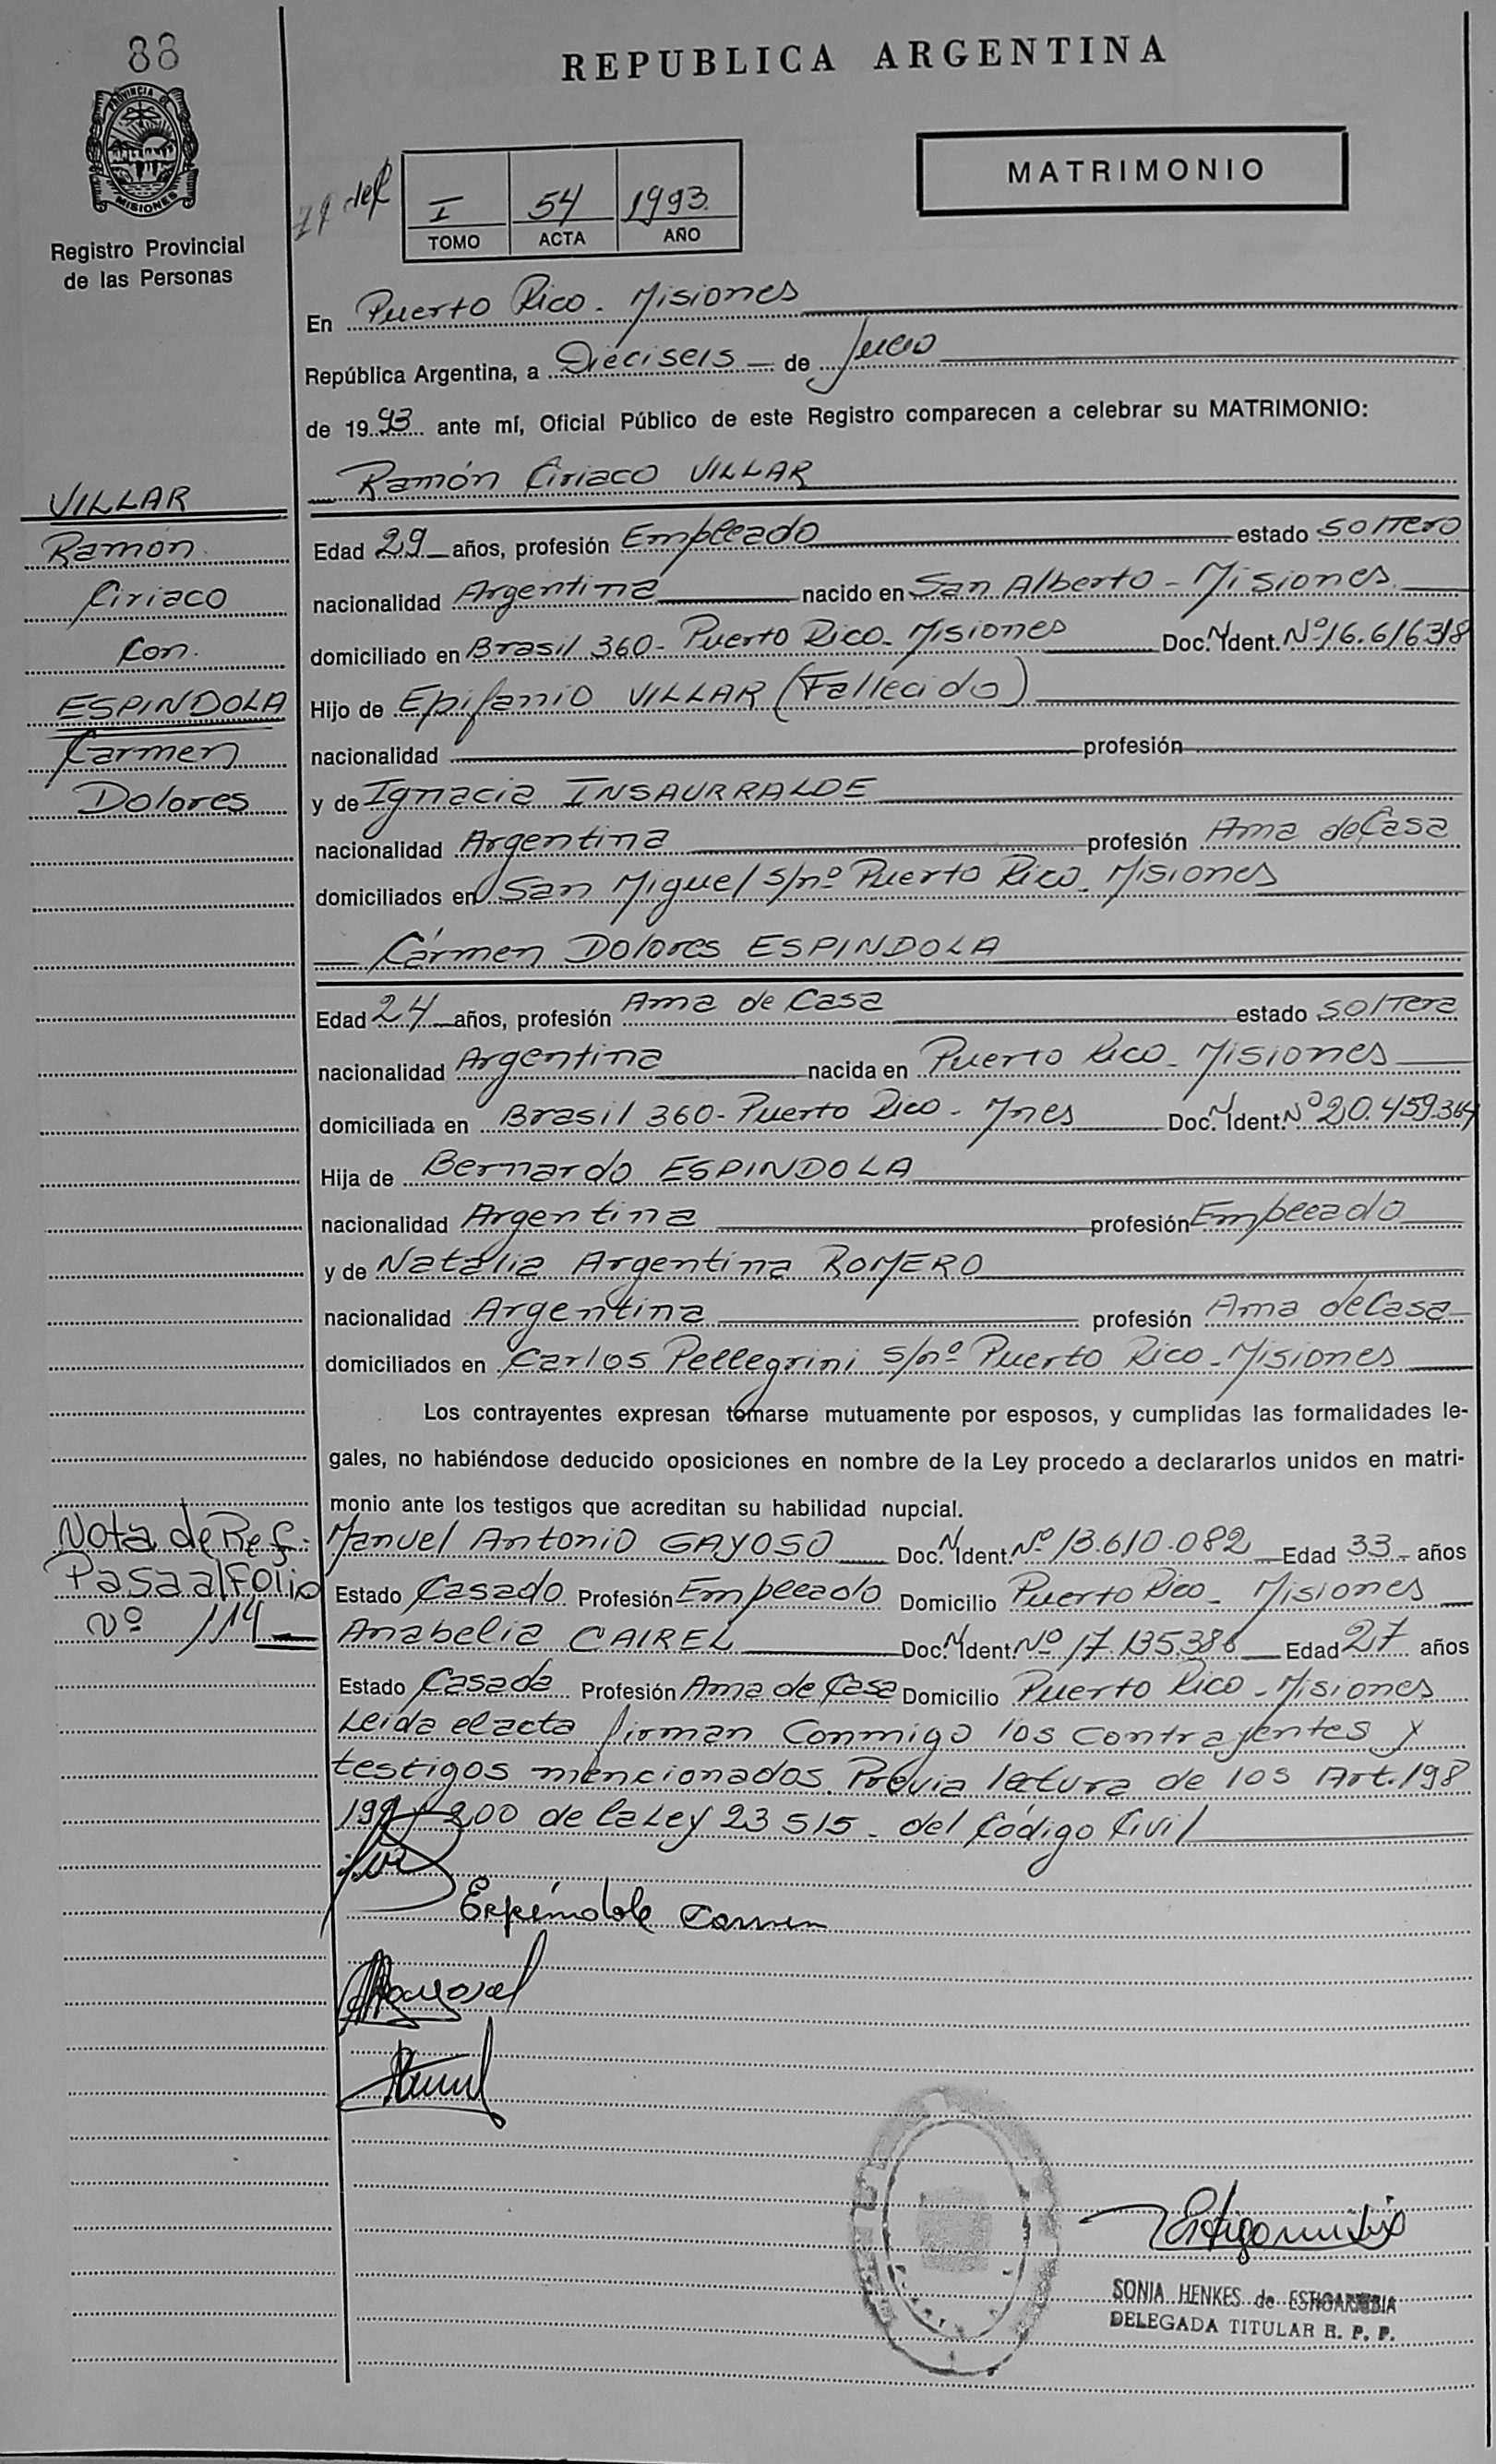 88
REPUBLICA ARGENTINA
PROVINCIA DE
MISIONES
Registro Provincial
de las Personas
MATRIMONIO
I 54 1993.
TOMO ACTA AÑO
En Puerto Rico - Misiones
República Argentina, a Dieciseis - de
de 1993 ante mí, Oficial Público de este Registro comparecen a celebrar su MATRIMONIO:
Ramón Ciriaco VILLAR
VILLAR
Ramón
Ciriaco
Con.
ESPINDOLA
Carmen
Dolores
Edad 29 años, profesión Empleado estado soltero
nacionalidad Argentina nacido en San Alberto - Misiones
domiciliado en Brasil 360 - Puerto Rico - Misiones Doc. N. Ident. Nº 16.616318
Hijo de Epifanio VILLAR (Fallecido)
nacionalidad profesión
y de Ignacia INSAURRALDE
nacionalidad Argentina profesión Ama de Casa
domiciliados en San Miguel s/nº Puerto Rico - Misiones
Cármen Dolores ESPINDOLA
Edad 24 años, profesión Ama de Casa estado soltera
nacionalidad Argentina nacida en Puerto Rico - Misiones
domiciliada en Brasil 360 - Puerto Rico - Mnes Doc. N. Ident. Nº 20.459.364
Hija de Bernardo ESPINDOLA
nacionalidad Argentina profesión Empleado
y de Natalia Argentina ROMERO
nacionalidad Argentina profesión Ama de Casa
domiciliados en Carlos Pellegrini s/nº Puerto Rico - Misiones
Los contrayentes expresan tomarse mutuamente por esposos, y cumplidas las formalidades le-
gales, no habiéndose deducido oposiciones en nombre de la Ley procedo a declararlos unidos en matri-
monio ante los testigos que acreditan su habilidad nupcial.
Nota de Ref:
Pasa al Folio
Nº 114
Manuel Antonio GAYOSO Doc. N. Ident. Nº 13.610.082 Edad 33 - años
Estado Casado Profesión Empleado Domicilio Puerto Rico - Misiones
Anabelia CAIREL Doc. N. Ident. Nº 17.135.386 Edad 27 años
Estado Casada Profesión Ama de Casa Domicilio Puerto Rico - Misiones
Leída el acta firman Conmigo los contrayentes y
testigos mencionados. Previa lectura de los Art. 198
199 y 200 de la Ley 23515 - del Código Civil
Espíndola Carmen
SONIA HENKES de ESTIGARRIBIA
DELEGADA TITULAR R. P. P.